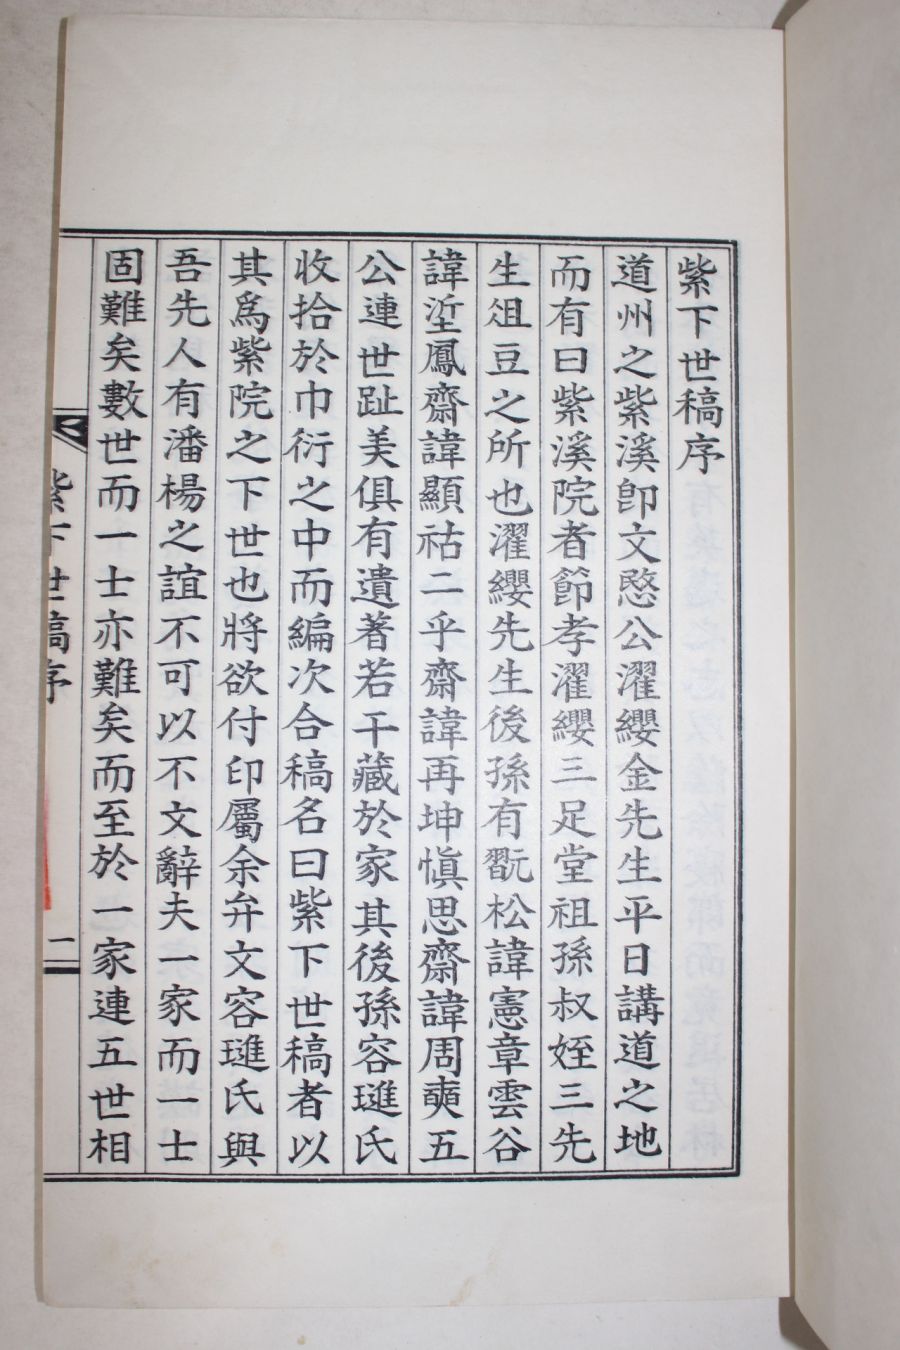 紫下世稿序
道州之紫溪卽文愍公濯纓金先生平日講道之地
而有曰紫溪院者節孝濯纓三足堂祖孫叔姪三先
生俎豆之所也濯纓先生後孫有翫松諱憲章雲谷
諱垽鳳齋諱顯祜二乎齋諱再坤愼思齋諱周奭五
公連世趾美俱有遺著若干藏於家其後孫容璡氏
收拾於巾衍之中而編次合稿名曰紫下世稿者以
其爲紫院之下世也將欲付印屬余弁文容璡氏與
吾先人有潘楊之誼不可以不文辭夫一家而一士
固難矣數世而一士亦難矣而至於一家連五世相
紫下世稿序